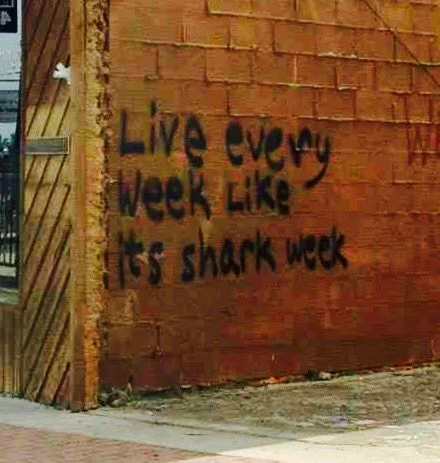 Live every
Week Like
its shark week